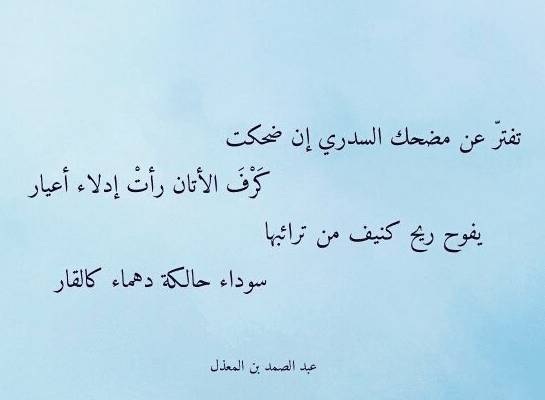 تفترّ عن مضحك السدري إن ضحكت
كَرْفَ الأتان رأتْ إدلاء أعيار
يفوح ريح كنيف من ترائبها
سوداء حالكة دهماء كالقار
عبد الصمد بن المعذل